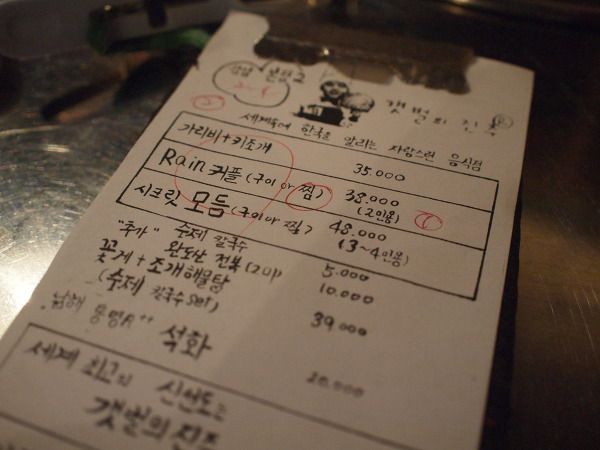 강남 본점2
2-4
갯벌의 진주
세계속에 한국을 알리는 자랑스런 음식점
가리비+키조개 35.000
Rain 커플 (구이 or 찜) 38.000
(2인용)
시크릿 모듬 (구이 or 찜) 48.000
(3~4인용)
"추가" 수제 칼국수 5.000
완도산 전복 (2미) 10.000
꽃게+조개해물탕
(수제 칼국수 set) 39.000
남해 통영A++ 석화 20.000
세계 최고의 신선도는
갯벌의 진주